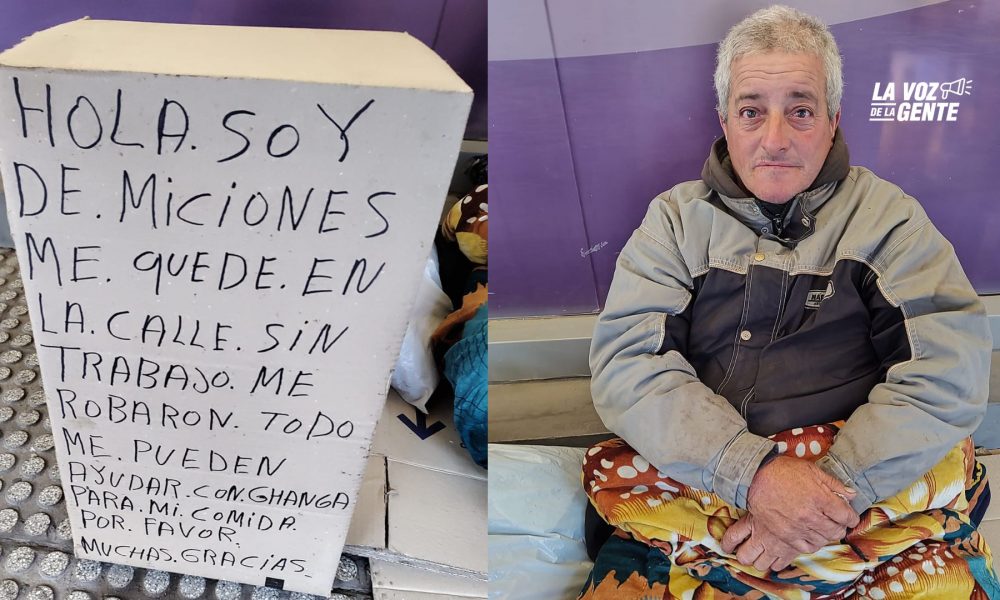 HOLA. SOY
DE. MICIONES
ME. QUEDE. EN
LA. CALLE. SIN
TRABAJO. ME
ROBARON. TODO
ME. PUEDEN
AYUDAR. CON. GHANGA
PARA. MI. COMIDA.
POR. FAVOR.
MUCHAS. GRACIAS_
LA VOZ
DE LA GENTE